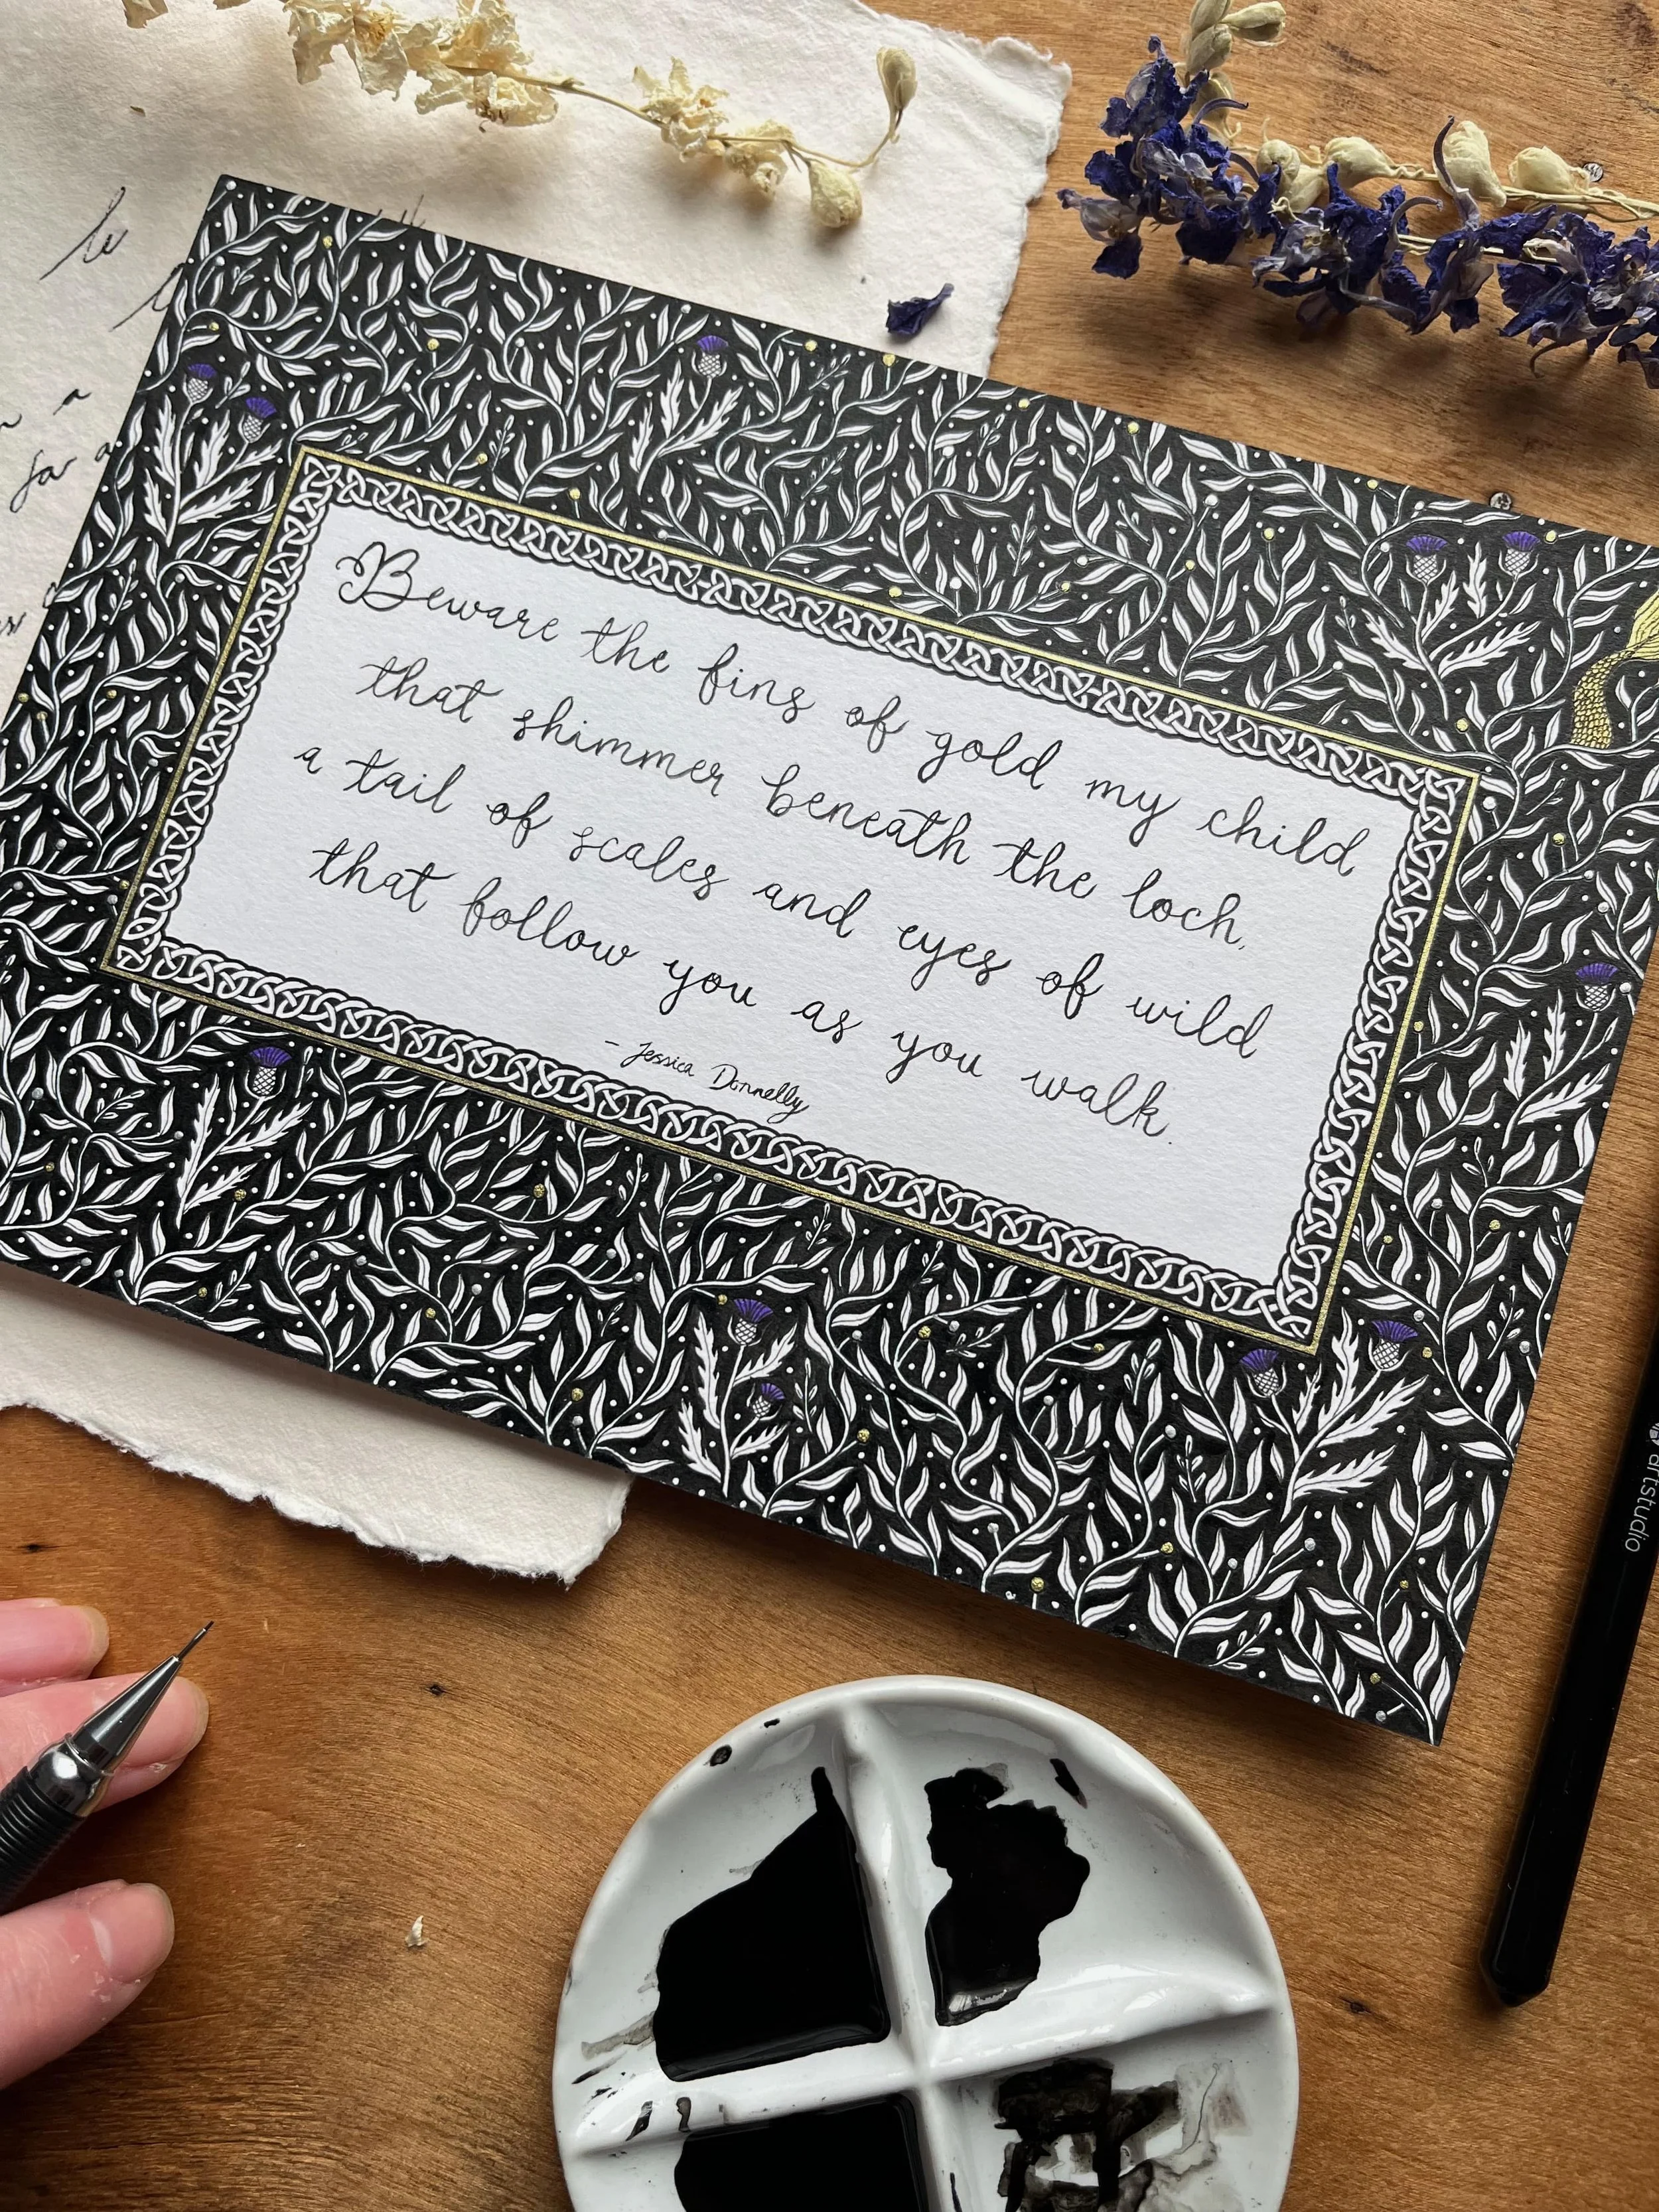 Beware the fins of gold my child
that shimmer beneath the loch,
a tail of scales and eyes of wild
that follow you as you walk.
- Jessica Donnelly
a
for a
artstudio